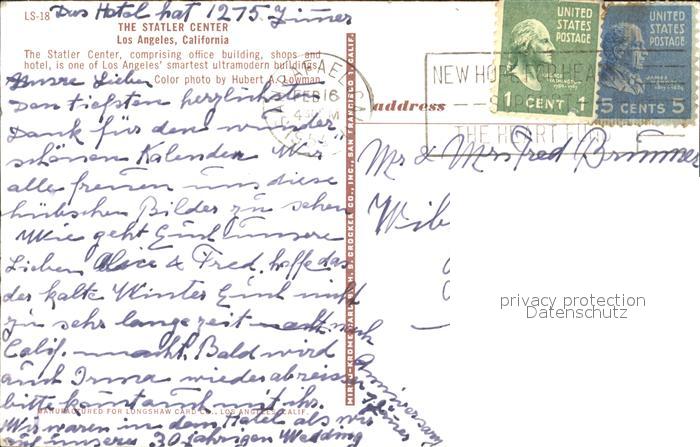 Das Hotel hat 1275 Zimer
LS-18
THE STATLER CENTER
Los Angeles, California
The Statler Center, comprising office building, shops and
hotel, is one of Los Angeles' smartest ultramodern buildings.
Color photo by Hubert A. Lowman
Unsre Lieben
Den tiefsten herzlichsten
Dank für den wunder
schönen Kalender Wir
alle freuen uns diese
hübschen Bilder zu sehen
Wie geht Euch unsere
Lieben Alice & Fred, hoffe das
der kalte Winter Euch nicht
zu sehr lange zeit nach
Calif. macht. Bald wird
auch Irma wieder abreisen
bitte komt auch mit ihr.
MANUFACTURED FOR LONGSHAW CARD CO., LOS ANGELES, CALIF.
Wir waren in dem Hotel als wir
auf unserer 30 jährigen Wedding
Anniversary
waren
MIRRO-KROME CARD BY H. S. CROCKER CO., INC., SAN FRANCISCO 1, CALIF.
FEB 16
UNITED
STATES
POSTAGE
1 CENT 1
UNITED
STATES
POSTAGE
5 CENTS 5
NEW HOPE FOR HEARTS
THE HEART FUND
address
Mr & Mrs Fred Brunner
privacy protection
Datenschutz